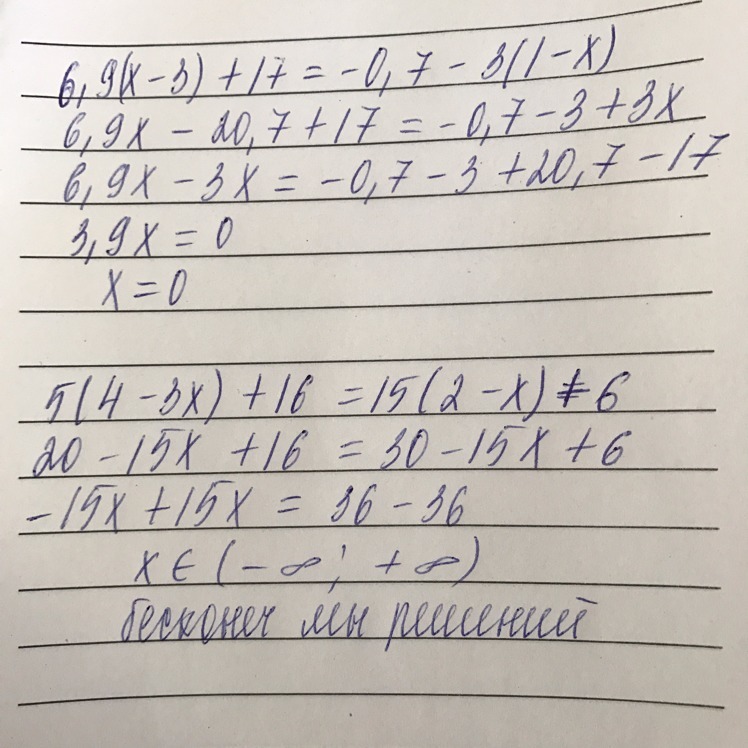 6,9(x-3)+17=-0,7-3(1-x)
6,9x-20,7+17=-0,7-3+3x
6,9x-3x=-0,7-3+20,7-17
3,9x=0
x=0
5(4-3x)+16=15(2-x)+6
20-15x+16=30-15x+6
-15x+15x=36-36
x∈(-∞; +∞)
бесконеч мн решений